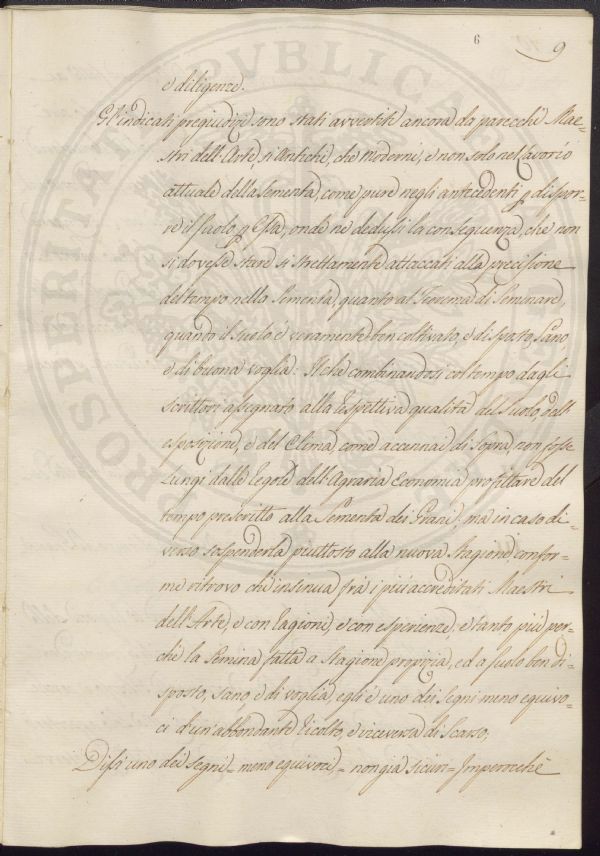 6
9
e diligenze.
Gl'indicati pregiudizj sono stati avvertiti ancora da parecchi Mae=
stri dell'Arte sì Antichi, che Moderni, e non solo nel lavorio
attuale della Sementa, come pure negli antecedenti p dispor=
re il Suolo p Essa, onde ne dedussi la conseguenza, che non
si dovesse stare sì strettamente attaccati alla precisione
del tempo nella Sementa, quanto al Sistema di Seminare,
quando il Suolo è veramente ben coltivato, e disposto, Sano
e di buona voglia: Il che combinandosi col tempo dagli
scrittori assegnato alla respettiva qualità del Suolo, dall'
esposizione, e del Clima, come accennai di Sopra, non fosse
lungi dalle regole dell'Agraria Economia profittare del
tempo prescritto alla Sementa dei Grani; ma in caso di=
verso sospenderla piuttosto alla nuova Stagione, confor=
me ritrovo che insinua frà i più accreditati Maestri
dell'Arte, e con ragioni, e con esperienze, e tanto più per=
chè la Semina fatta a Stagione propizia, ed a suolo ben di=
sposto, sano, e di voglia, egli è uno dei Segni meno equivo=
ci d'un'abbondante ricolto, e viceversa di Scarso.
Dissi uno dei Segni = meno equivoci, = non già sicuri = Imperocchè
PROSPERITATI PVBLICAE